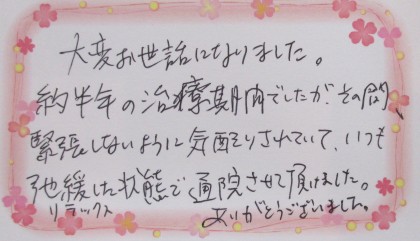 大変お世話になりました。
約半年の治療期間でしたが、その間、
緊張しないように気配りされていて、いつも
弛緩した状態で通院させて頂けました。
リラックス
ありがとうございました。